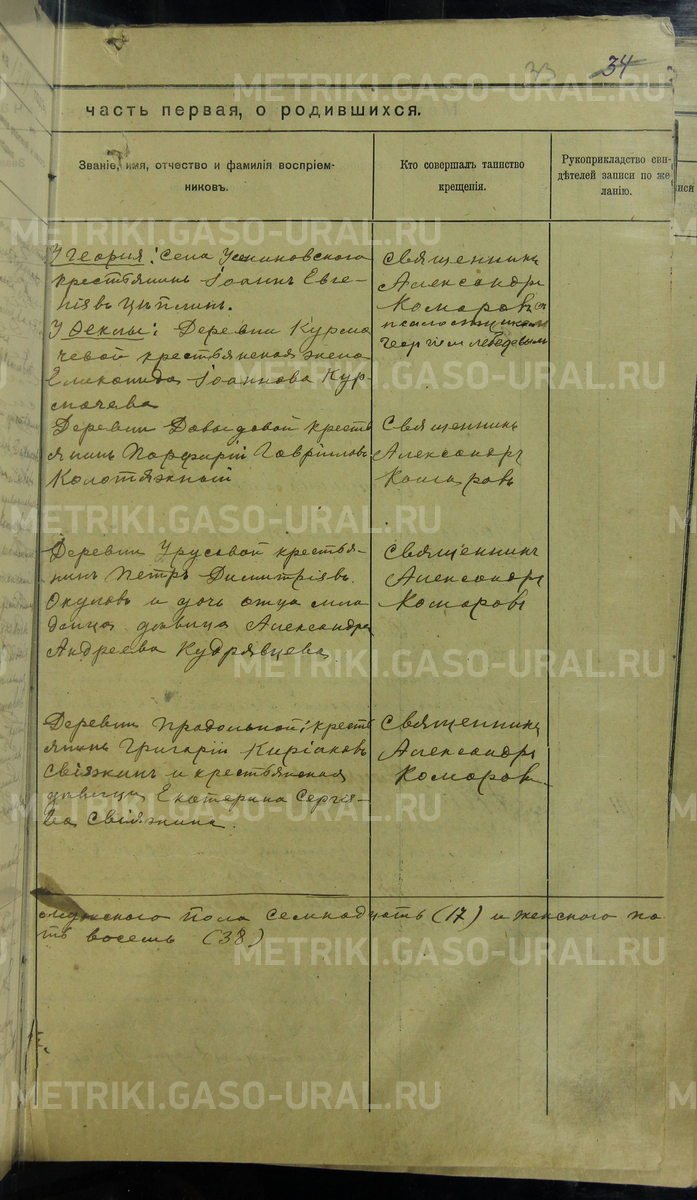 33 34
часть первая, о родившихся.
Званіе, имя, отчество и фамилія воспріем-
никовъ.
Кто совершалъ таинство
крещенія.
Рукоприкладство сви-
дѣтелей записи по же-
ланію.
У Георгія: Села
крестьянинъ Іоаннъ Евге-
ніевъ Цыплинъ.
У Ѳеклы: Деревни Курма
чевой крестьянская жена
Іоаннова Кур-
мачева
Священникъ
Александръ
Комаровъ съ
псаломщикомъ
Георгіем Лебедевым
Деревни Давыдовой кресть
янинъ Порфирій Гавріиловъ
Колотяжный
Священникъ
Александръ
Комаровъ
Деревни Урусовой крестья-
нинъ Петръ Димитріевъ
Окуловъ и дочь отца мла
денца дѣвица Александра
Андреева Кудрявцева.
Священникъ
Александръ
Комаровъ
Деревни Продольной: кресть
янинъ Григорій Киріаковъ
Свіяжинъ и крестьянская
дѣвица Екатерина Сергіе-
ва Свіяжина.
Священникъ
Александръ
Комаровъ
мужского пола семнадцать (17) и женского
восемь (38)
METRIKI.GASO-URAL.RU